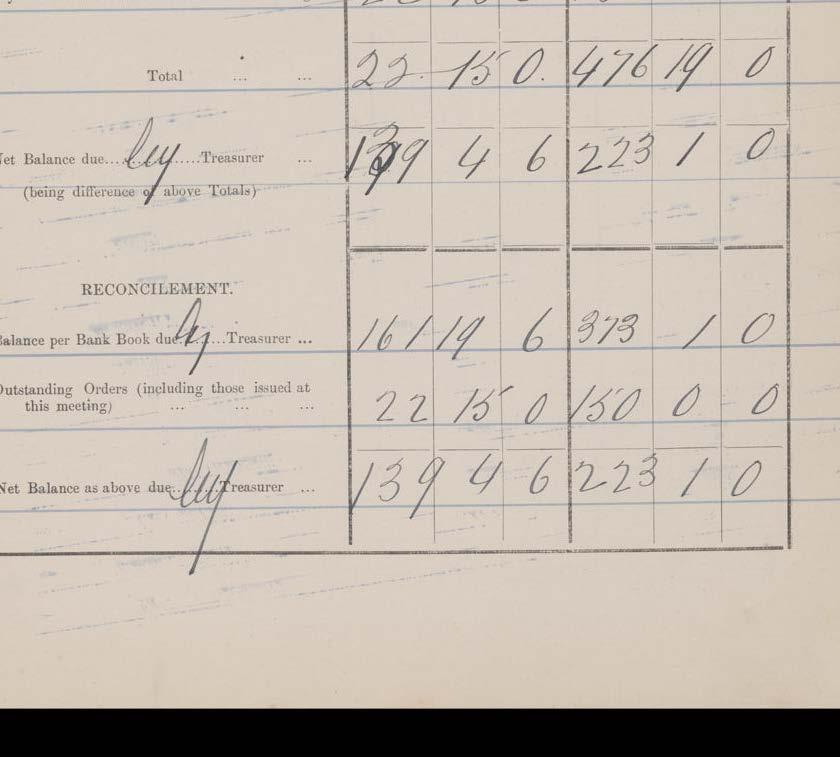 Total ... ... 22 15 0. 476 19 0
et Balance due...by....Treasurer ... 139 4 6 223 1 0
(being difference of above Totals)
RECONCILEMENT.
Balance per Bank Book due by...Treasurer ... 161 19 6 373 1 0
Outstanding Orders (including those issued at
this meeting) ... ... ... 22 15 0 150 0 0
Net Balance as above due..by Treasurer ... 139 4 6 223 1 0